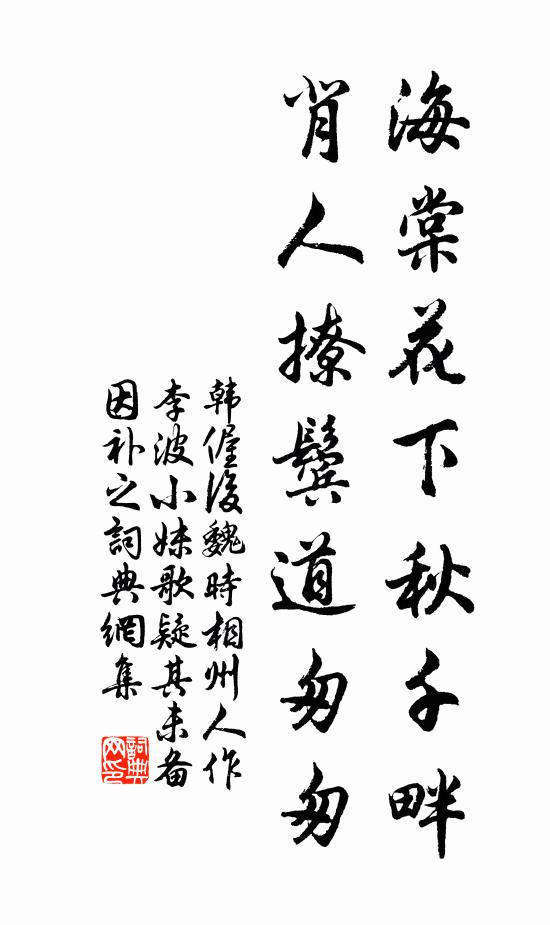 海棠花下秋千畔
背人撩鬓道匆匆
韩偓後魏時相州人作
李波小妹歌疑其未备
因补之詞典網集
詞典網印